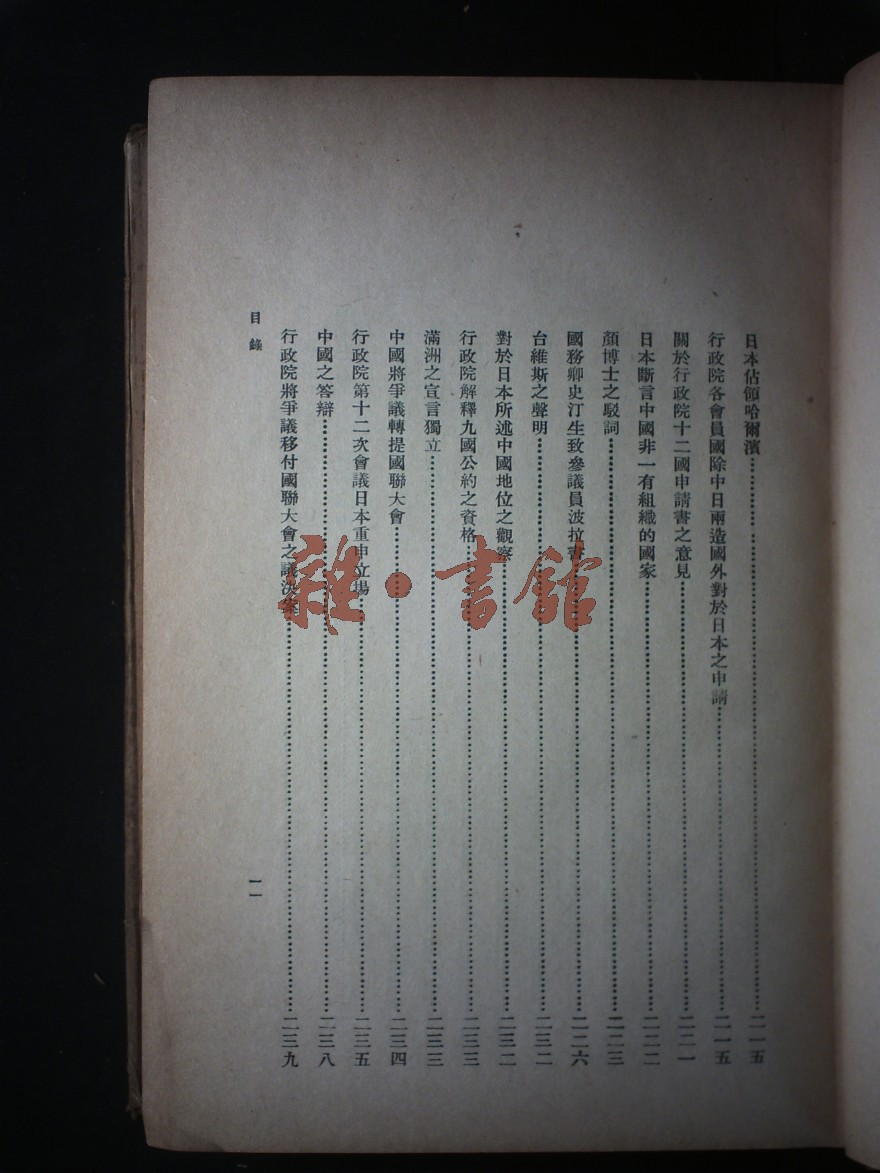 日本佔領哈爾濱……二一五
行政院各會員國除中日兩造國外對於日本之申請……二一五
關於行政院十二國申請書之意見……二二一
日本斷言中國非一有組織的國家……二二二
顏博士之駁詞……二二三
國務卿史汀生致參議員波拉書……二二六
台維斯之聲明……二三二
對於日本所述中國地位之觀察……二三二
行政院解釋九國公約之資格……二三三
滿洲之宣言獨立……二三三
中國將爭議轉提國聯大會……二三四
行政院第十二次會議日本重申立場……二三五
中國之答辯……二三八
行政院將爭議移付國聯大會之議決案……二三九
目錄
一一
雜·書館